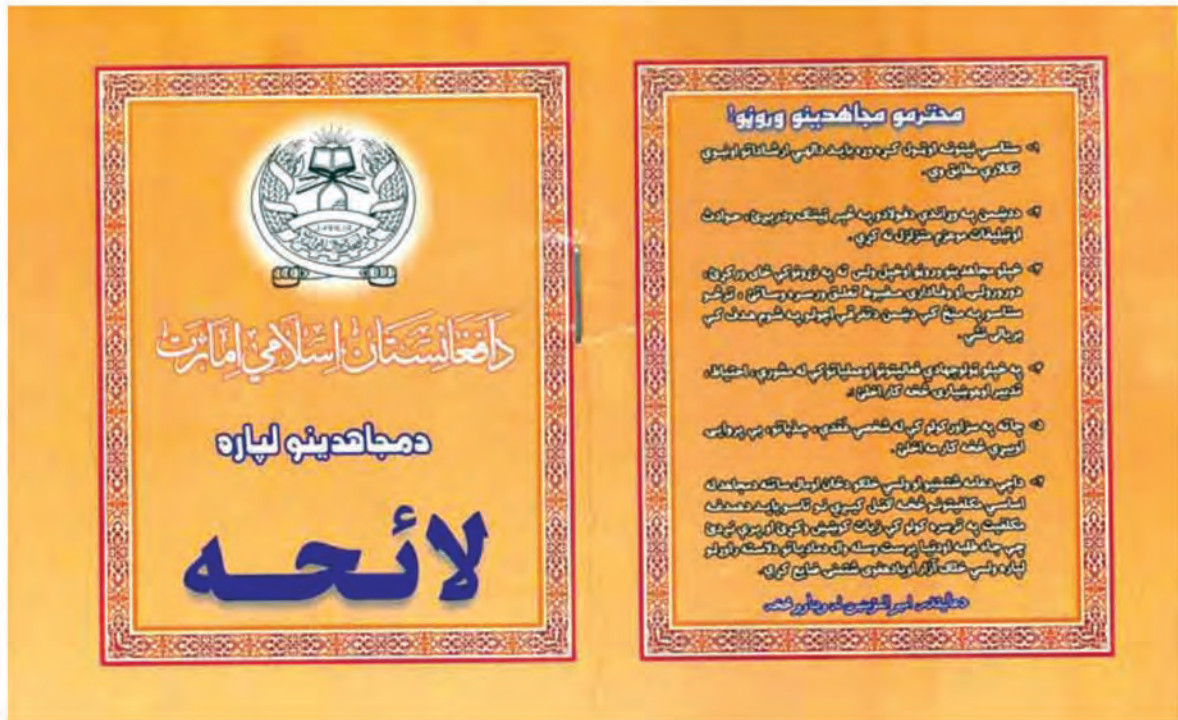 د افغانستان اسلامي امارت
دمجاهدينو لپاره
لائحه
محترمو مجاهدينو وروڼو!
۱- ستاسي نيتونه اوټول کړه وړه بايد دالهي ارشاداتو اونبوي
تګلاري مطابق وي .
۲- ددښمن په وړاندي دفولادو په څېر ټينګ ودريږئ ، حوادث
اوتبليغات موهزم متزلزل نه کړي .
۳- خپلو مجاهدينو وروڼو اوخپل ولس ته په زړونوکي ځای ورکړئ ،
دورورولۍ او وفادارۍ مضبوط تعلق ورسره وساتئ ، ترڅو
ستاسو په منځ کي دښمن دتفرقې اچولو په شوم هدف کي
بريالی نشي .
۴- په خپلو ټولوجهادي فعاليتونو اوعملياتوکي له مشورې ، احتياط ،
تدبير اوهوښيارۍ څخه کار اخلئ .
۵- چاته په سزاورکولو کي له شخصي عُقدې ، جذباتو ، بې پروايۍ
اوبيړې څخه کار مه اخلئ .
۶- داچي دعامه شتمنيو او ولسي خلکو دځان اومال ساتنه دمجاهد له
اساسي مکلفيتونو څخه ګڼل کيږي نو تاسو بايد دهمدغه
مکلفيت په ترسره کولو کي زيات کوښښ وکړئ او پرې نږدئ
چي جاه طلبه اودنيا پرست وسله وال دمادياتو دلاسته راوړلو
لپاره ولسي خلک آزار اويادهغوی شتمني ضايع کړي .
دعاليقدر امير المؤمنين له ويناوو څخه